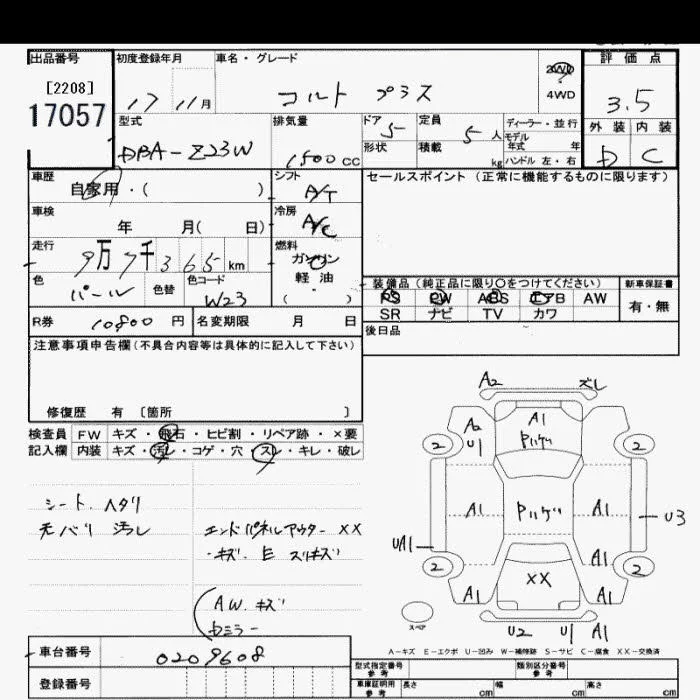 出品番号 初度登録年月 車名・グレード 評価点
[2208]
17057
17 11月 コルト プラス 2WD 3.5
4WD
型式 排気量 ドア 5 定員 5人 ディーラー・並行 外装 内装
DBA-Z23W 1500cc 形状 積載 kg モデル年式 年 D C
ハンドル 左・右
車歴 シフト セールスポイント (正常に機能するものに限ります)
自家用・( ) A/T
車検 冷房
年 月( 日) A/C
走行 燃料
9万7千365km ガソリン
軽・油
色 色替 色コード ( )
パール W23
装備品 (純正品に限り○をつけてください) 新車保証書
PS PW ABS エアB AW 有・無
SR ナビ TV カワ
R券 10800円 名変期限 月 日 後日品
注意事項申告欄(不具合内容等は具体的に記入して下さい)
修復歴 有 〔箇所 〕
検査員 FW キズ・飛石・ヒビ割・リペア跡・×要
記入欄 内装 キズ・汚レ・コゲ・穴・スレ・キレ・破レ
シート、ヘタリ
天バリ 汚レ
エンドパネルアウター XX
キズ E スリキズ
AW. キズ
Dミラー
A2 ズレ
A2 A1
U1
2 2
A1 A1 U3
UA1 A1
2 XX 2
A1 A1
U2 U1 A1
スペア
A-キズ E-エクボ U-凹み W-補修跡 S-サビ C-腐食 XX-交換済
車台番号 0209608
登録番号
型式指定番号 参考 類別区分番号 参考
車庫証明用 参考 長さ cm 幅 cm 高さ cm